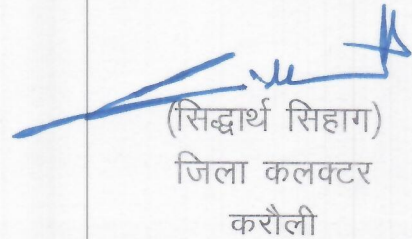 (सिद्धार्थ सिहाग)
जिला कलक्टर
करौली